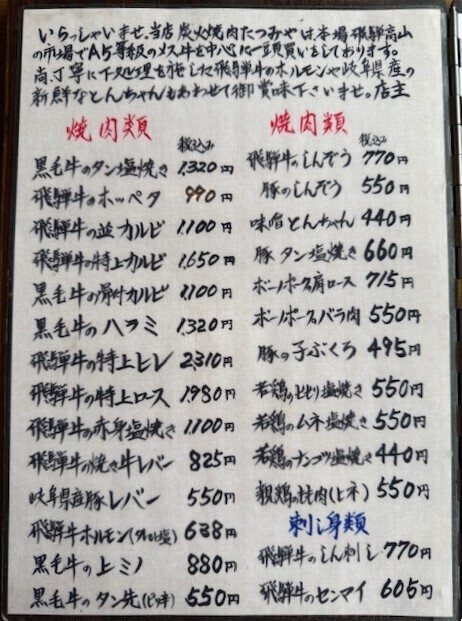 いらっしゃいませ、当店 炭火焼肉たつみやは、本場飛騨高山
の市場でA5等級のメス牛を中心に一頭買いをしております。
尚、丁寧に下処理を施した飛騨牛のホルモンや岐阜県産の
新鮮なとんちゃんもあわせて御賞味下さいませ。店主
焼肉類
税込み
黒毛牛のタン塩焼き 1,320円
飛騨牛のホッペタ 990円
飛騨牛の並カルビ 1,100円
飛騨牛の特上カルビ 1,650円
黒毛牛の骨付カルビ 1,100円
黒毛牛のハラミ 1,320円
飛騨牛の特上ヒレ 2,310円
飛騨牛の特上ロス 1,980円
飛騨牛の赤身塩焼き 1,100円
飛騨牛の焼き牛レバー 825円
岐阜県産豚レバー 550円
飛騨牛ホルモン(タレor塩) 638円
黒毛牛の上ミノ 880円
黒毛牛のタン先(ピリ辛) 550円
焼肉類
税込み
飛騨牛のしんぞう 770円
豚のしんぞう 550円
味噌とんちゃん 440円
豚タン塩焼き 660円
ボーノポーク肩ロース 715円
ボーノポークバラ肉 550円
豚の子ぶくろ 495円
若鶏のせせり塩焼き 550円
若鶏のムネ塩焼き 550円
若鶏のナンコツ塩焼き 440円
親鶏の焼肉(ヒネ) 550円
刺し身類
飛騨牛のしん刺し 770円
飛騨牛のセンマイ 605円